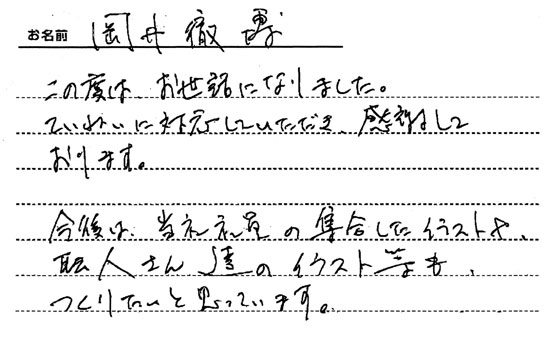 お名前 岡井 徹 様
この度は、お世話になりました。
ていねいに対応していただき、感謝して
おります。
今後は、当社社員の集合したイラストや、
職人さん達のイラスト等も、
つくりたいと思っています。